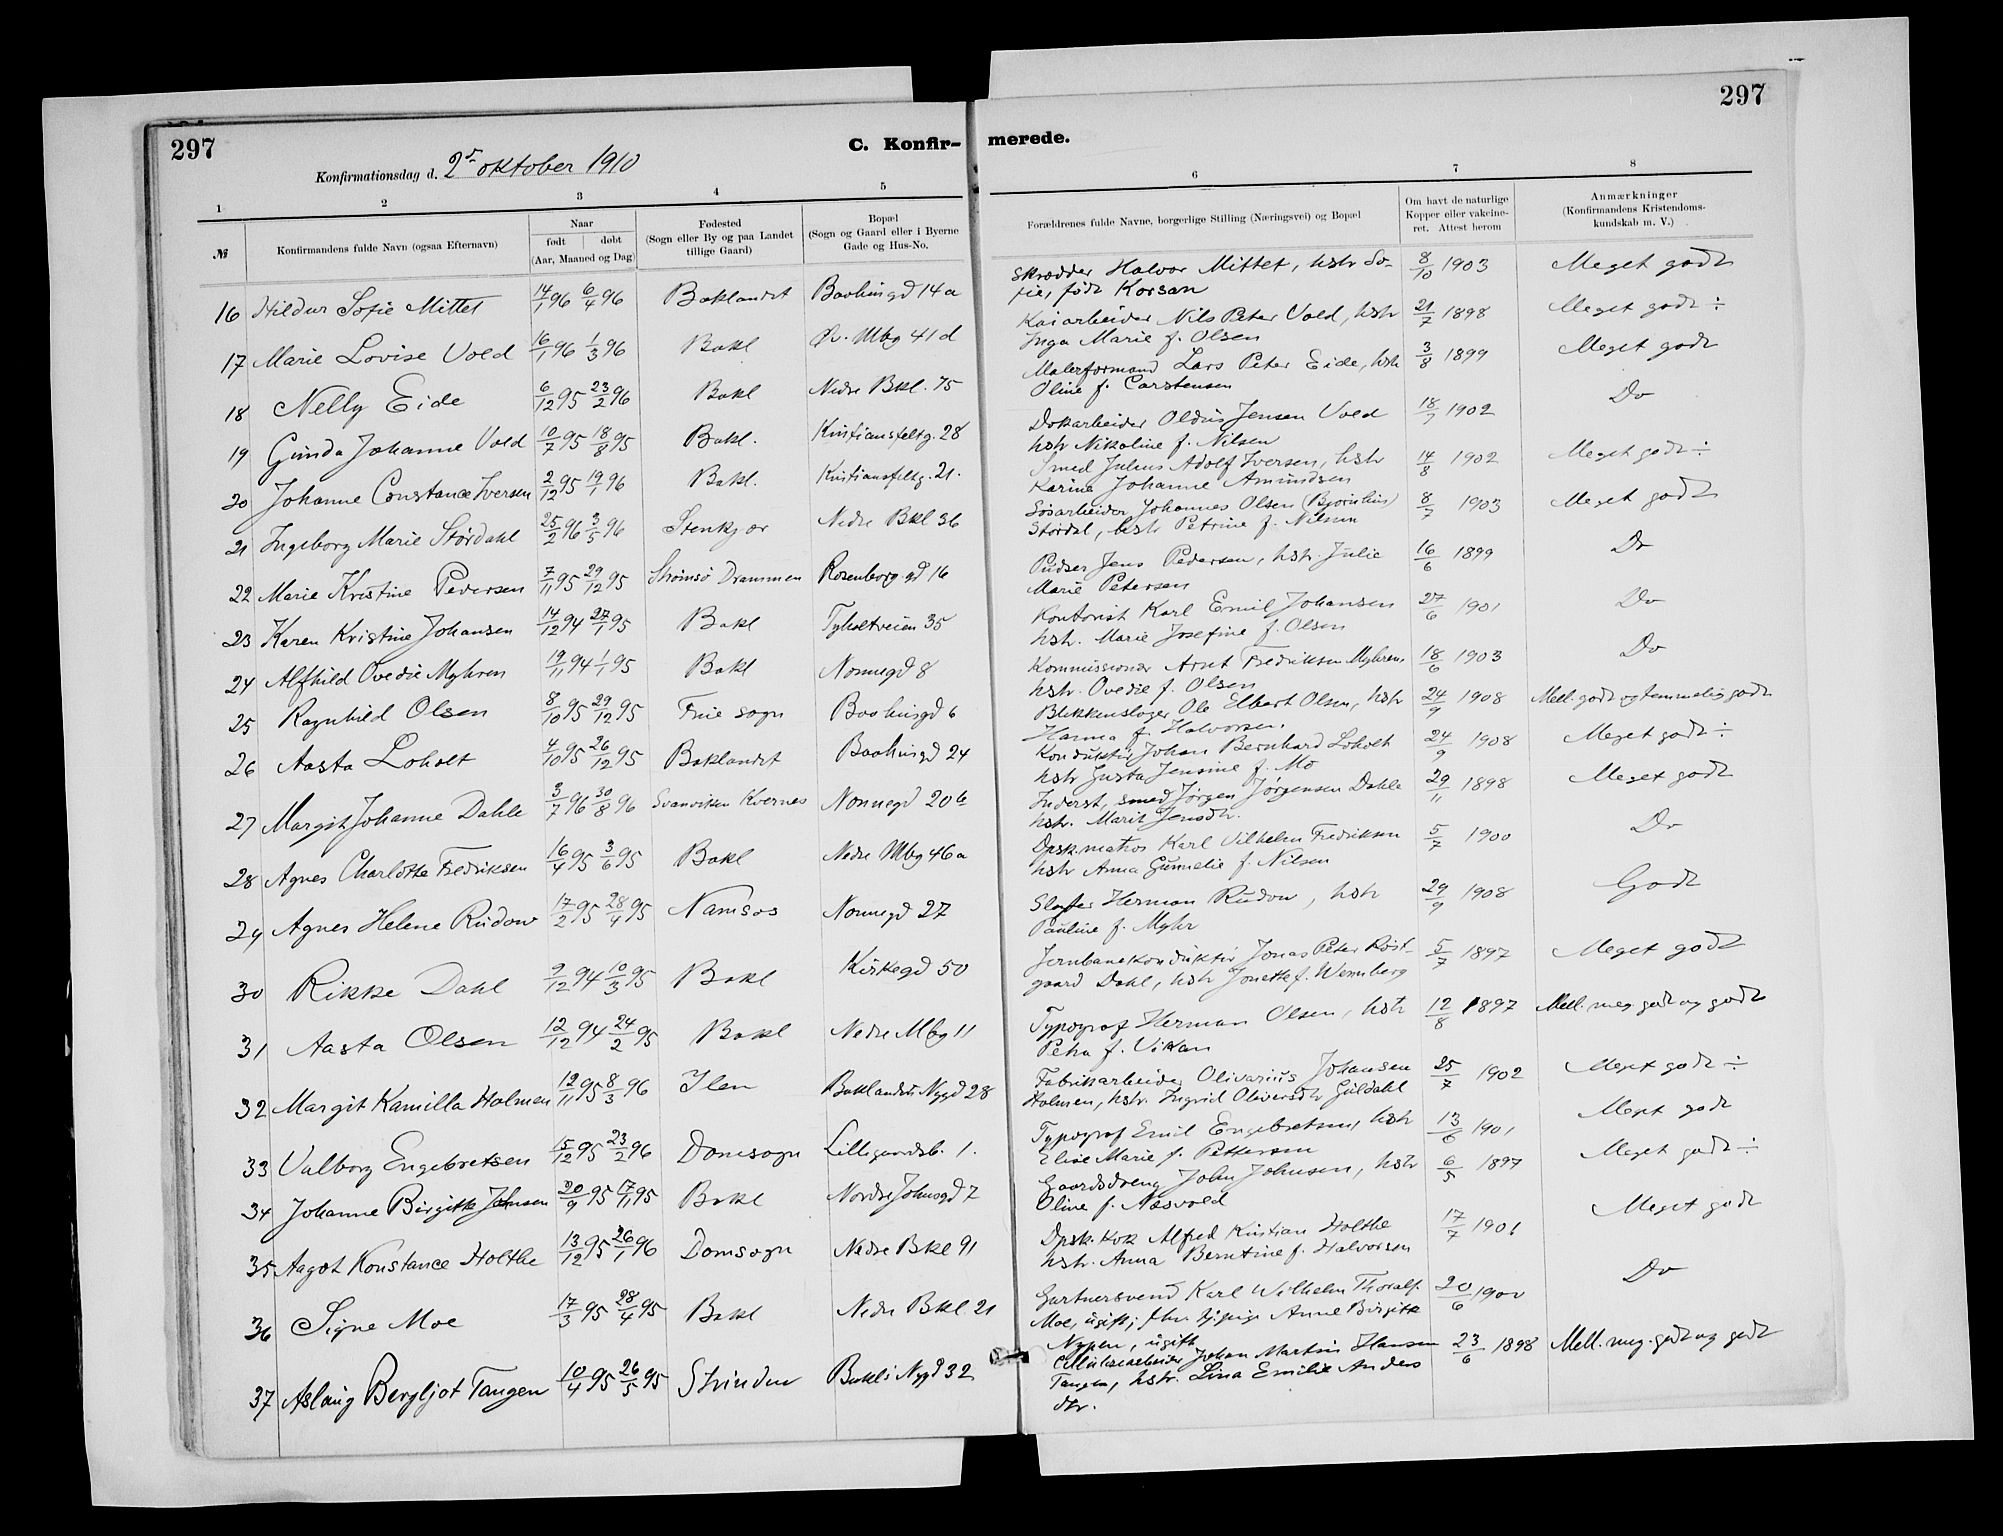 297
297
C. Konfir-
merede.
Konfirmationsdag d. 2den oktober 1910
1 2 3 4 5 6 7 8
№
Konfirmandens fulde Navn (ogsaa Efternavn)
Naar
født | døbt
(Aar, Maaned og Dag)
Fødested
(Sogn eller By og paa Landet
tillige Gaard)
Bopæl
(Sogn og Gaard eller i Byerne
Gade og Hus-No.
Forældrenes fulde Navne, borgerlige Stilling (Næringsvei) og Bopæl
Om havt de naturlige
Kopper eller vakcine-
ret. Attest herom
Anmærkninger
(Konfirmandens Kristendoms-
kundskab m. V.)
16 Hildur Sofie Mittet 14/1 96 6/4 96 Baklandet Baahusgd 14a Skrædder Halvor Mittet, hstr So- 8/10 1903 Meget godt
fie, født Korsan
17 Marie Lovise Vold 16/1 96 1/3 96 Bakl Øv. Mbg 41d Kaiarbeider Nils Peter Vold, hstr 21/7 1898 Meget godt ÷
Inga Marie f. Olsen
18 Nelly Eide 6/12 95 23/2 96 Bakl Nedre Bkl. 75 Malerformand Lars Peter Eide, hstr 3/8 1899 Meget godt
Oline f. Carstensen
19 Gunda Johanne Vold 10/7 95 18/8 95 Bakl. Kristiansfeltg. 28 Dokarbeider Oldus Jensen Vold 18/7 1902 Do
hstr Nikoline f. Nilsen
20 Johanne Constance Iversen 2/12 95 19/1 96 Bakl. Kristiansfeltg. 21. Smed Julius Adolf Iversen, hstr 14/8 1902 Meget godt ÷
Karine Johanne Amundsen
21 Ingeborg Marie Størdahl 25/2 96 3/5 96 Stenkjær Nedre Bkl 36 Løsarbeider Johannes Olsen (Bjørnhus) 8/7 1903 Meget godt
Størdal, hstr Petrine f. Nilsen
22 Marie Kristine Pedersen 7/11 95 29/12 95 Strømsø Drammen Rosenborg gd 16 Pudser Jens Pedersen, hstr. Julie 16/6 1899 Do
Marie Petersen
23 Karen Kristine Johansen 14/12 94 27/1 95 Bakl Tyholtveien 35 Kontorist Karl Emil Johansen 27/6 1901 Do
hstr. Marie Josefine f. Olsen
24 Alfhild Ovedie Myhren 19/11 94 1/1 95 Bakl Nonnegd 8 Kommissionær Arnt Fredriksen Myhren 18/6 1903 Do
hstr. Ovedie f. Olsen
25 Ragnhild Olsen 8/10 95 29/12 95 Frue sogn Baahusgd 6 Blikkenslager Ole Elbert Olsen, hstr 24/9 1908 Mell. godt og temmelig godt
Hanna f. Halvorsen.
26 Aasta Loholt 4/10 95 26/12 95 Baklandet Baahusgd 24 Konduktør Johan Bernhard Loholt 24/9 1908 Meget godt ÷
hstr Gusta Jensine f. Mo
27 Margit Johanne Dahle 3/7 96 30/8 96 Svanviken Kvernes Nonnegd 20b Inderst, smed Jørgen Jørgensen Dahle 29/11 1898 Meget godt
hstr. Marit Jensdtr.
28 Agnes Charlotte Fredriksen 16/4 95 3/6 95 Bakl Nedre Mbg 46a Dpsk.matros Karl Vilhelm Fredriksen 5/7 1900 Do
hstr Anna Gunnelie f. Nilsen
29 Agnes Helene Rudow 17/2 95 28/4 95 Namsos Nonnegd 27 Slagter Herman Rudow, hstr 29/9 1908 Godt
Pauline f. Myhr
30 Rikke Dahl 9/12 94 10/3 95 Bakl Kirkegd 50 Jernbanekonduktør Jonas Peter Røst- 5/7 1897 Meget godt
gaard Dahl, hstr Jonette f. Wennberg
31 Aasta Olsen 12/12 94 24/2 95 Bakl Nedre Mbg 11 Typograf Herman Olsen, hstr 12/8 1897 Mell. meg. godt og godt
Petra f. Vikan
32 Margit Kamilla Holmen 12/11 95 8/3 96 Ilen Baklandets Nygd 28 Fabrikarbeider Olivarius Johansen 25/7 1902 Meget godt ÷
Holmen, hstr. Ingrid Oliversdtr Guldahl
33 Valborg Engebretsen 15/12 95 23/2 96 Domsogn Lillegaardsb. 1. Typograf Emil Engebretsen, hstr 13/6 1901 Meget godt
Elise Marie f. Pettersen
34 Johanne Birgitte Johnsen 30/9 95 17/11 95 Bakl Nordre Johnsgd 7 Gaardsdreng John Johnsen, hstr 6/5 1897 Meget godt ÷
Oline f. Næsvold
35 Aagot Konstance Holthe 13/12 95 26/1 96 Domsogn Nedre Bkl 91 Dpsk.kok Alfred Kristian Holthe 17/7 1901 Meget godt
hstr. Anna Berntine f. Halvorsen
36 Signe Moe 17/3 95 28/4 95 Bakl Nedre Bkl 21 Gartnersvend Karl Wilhelm Thoralf 20/6 1900 Do
Moe, ugift; Anne Birgitte
Nypen, ugift
37 Aslaug Bergljot Tangen 10/4 95 26/5 95 Strinden Bakl. Nygd 32 Johan Martin Hansen 23/6 1898 Mell. meg. godt og godt
Tangen, hstr. Lina Emilie Anders
dtr.